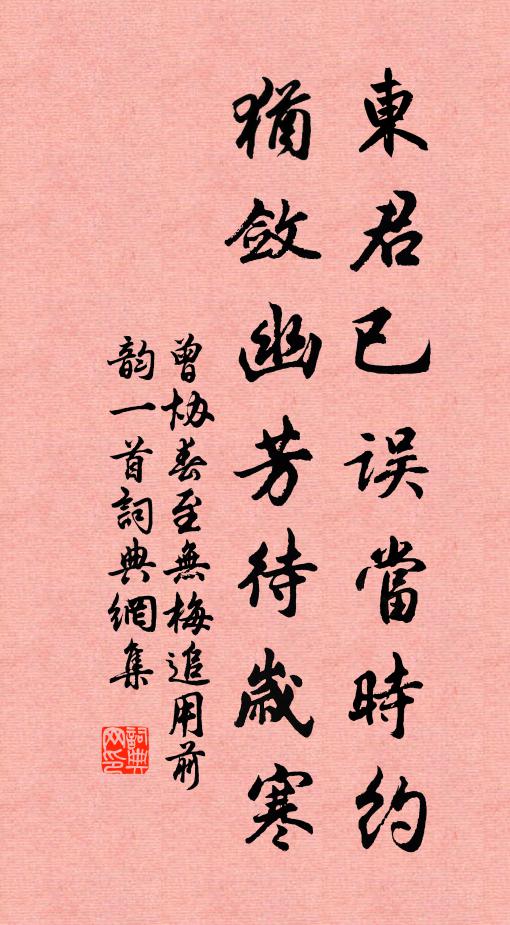 東君已误當時約
猶斂幽芳待歲寒
曾協春至無梅追用前
韵一首詞典網集
詞典网印